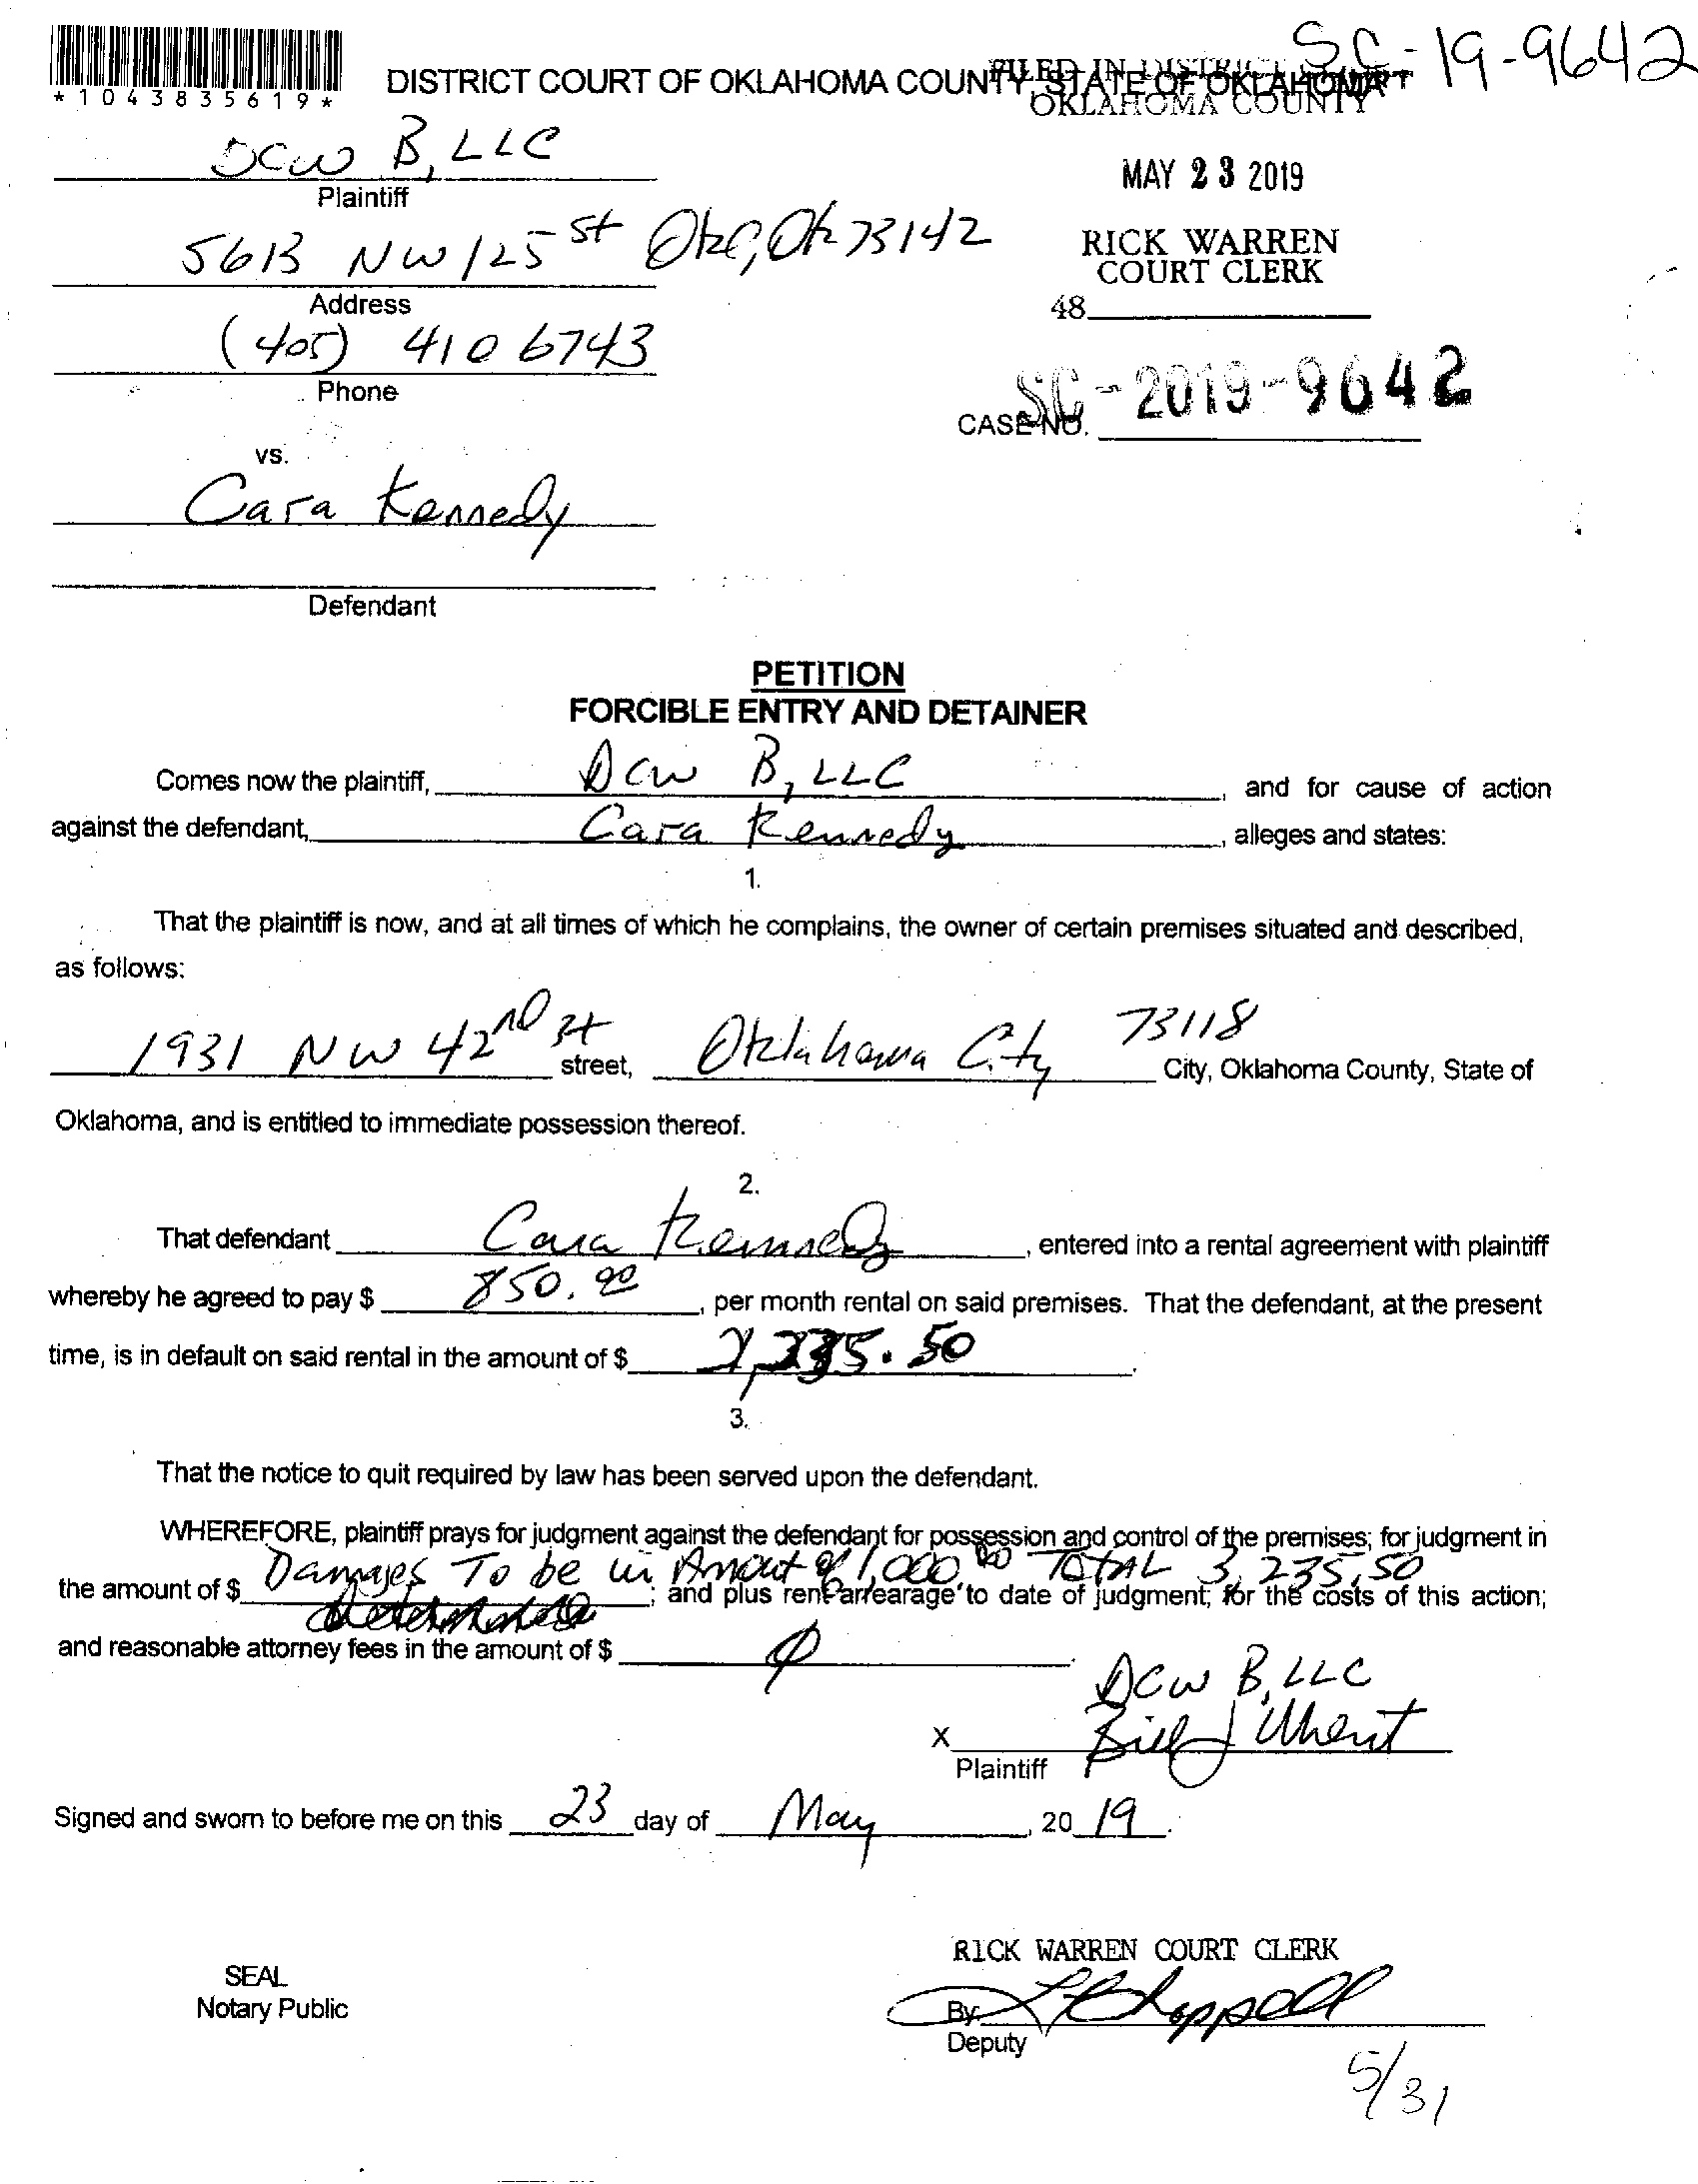 SC-19-9642
*1043835619*
DISTRICT COURT OF OKLAHOMA COUNTY, STATE OF OKLAHOMA
FILED IN DISTRICT COURT
OKLAHOMA COUNTY
DCW B, LLC
Plaintiff
MAY 23 2019
5613 NW 125 St Okc, Ok 73142
Address
RICK WARREN
COURT CLERK
48
(405) 410 6743
Phone
SC-2019-9642
CASE NO.
vs.
Cara Kennedy
Defendant
PETITION
FORCIBLE ENTRY AND DETAINER
Comes now the plaintiff, DCW B, LLC, and for cause of action
against the defendant, Cara Kennedy, alleges and states:
1.
That the plaintiff is now, and at all times of which he complains, the owner of certain premises situated and described,
as follows:
1931 NW 42nd St street, Oklahoma City 73118 City, Oklahoma County, State of
Oklahoma, and is entitled to immediate possession thereof.
2.
That defendant Cara Kennedy, entered into a rental agreement with plaintiff
whereby he agreed to pay $ 850.00, per month rental on said premises. That the defendant, at the present
time, is in default on said rental in the amount of $ 2,235.50.
3.
That the notice to quit required by law has been served upon the defendant.
WHEREFORE, plaintiff prays for judgment against the defendant for possession and control of the premises; for judgment in
Damages To be in Amout of 1,000 00 TOTAL 3,235.50
the amount of $ ; and plus rent arrearage to date of judgment; for the costs of this action;
determined
and reasonable attorney fees in the amount of $ .
DCW B, LLC
X
Plaintiff
Signed and sworn to before me on this 23 day of May, 20 19.
RICK WARREN COURT CLERK
SEAL
Notary Public
By
Deputy
5/31